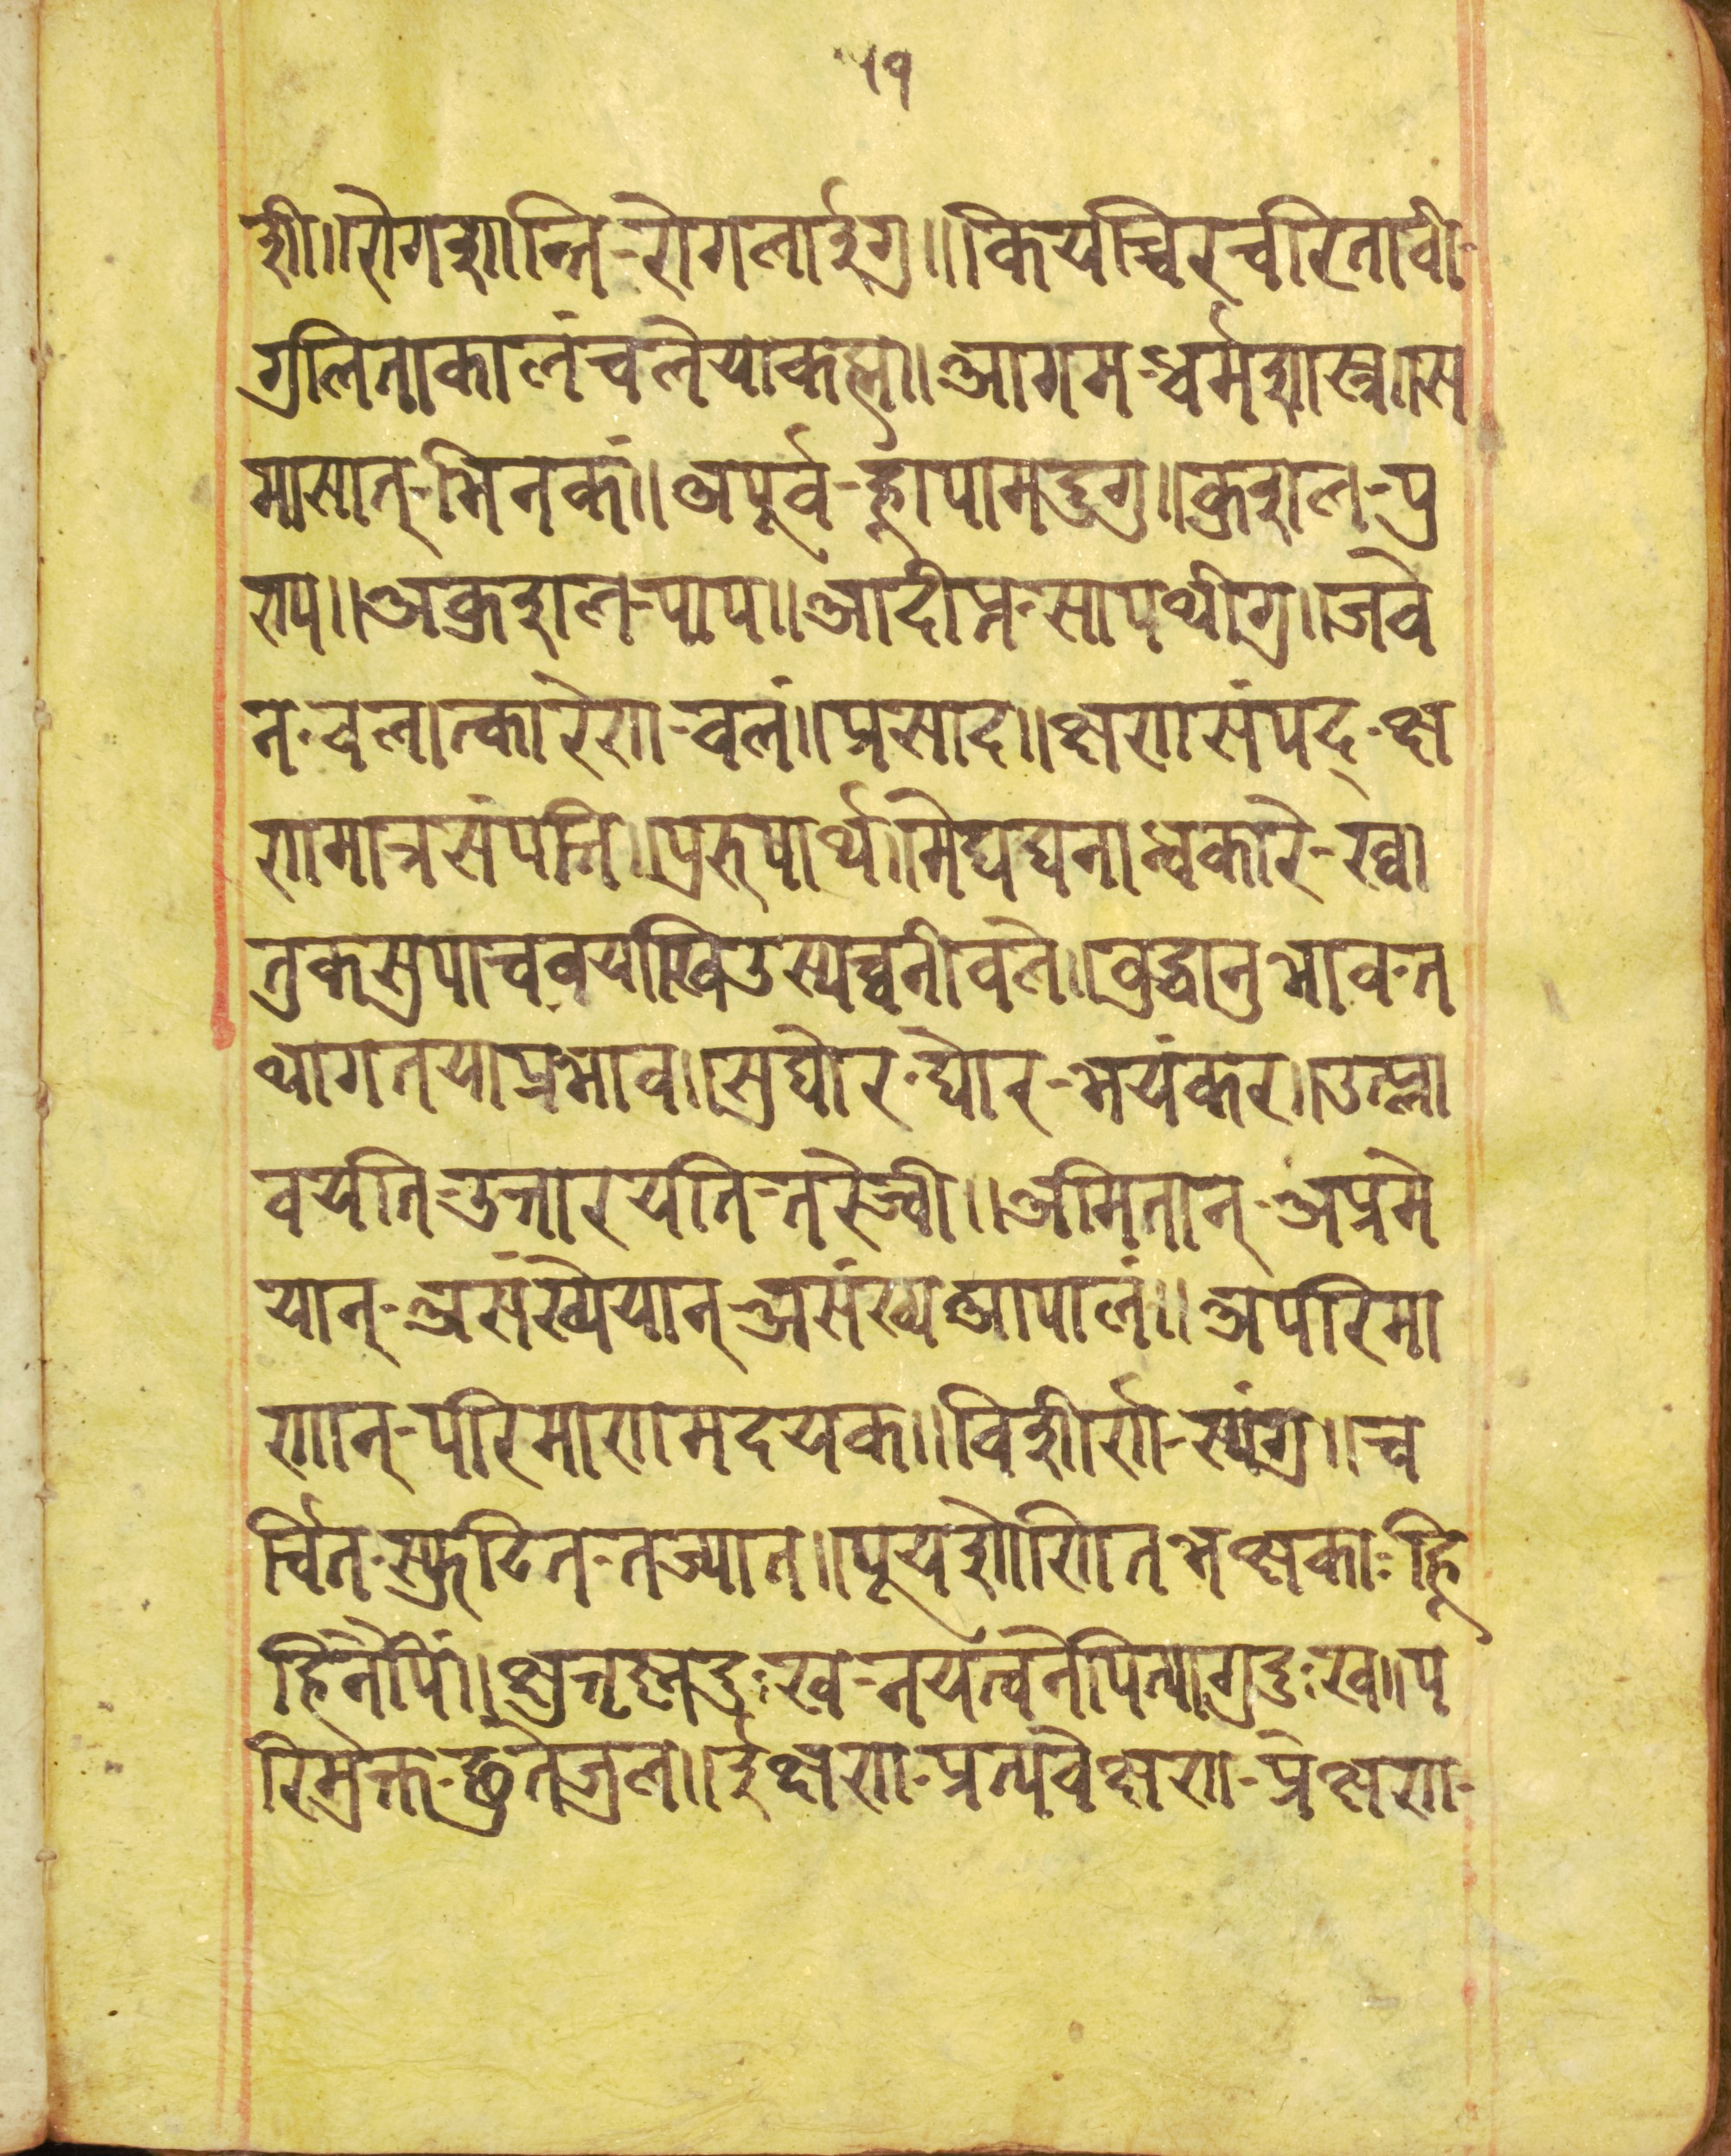 ५१
शी॥रोगशान्ति-रोगलाङुगु॥कियच्चिरचरितावी-
गुलिताकालंचलेयाकह्म॥आगम-धर्मशास्त्र॥स
मासात्-भिनकं॥अपूर्व-ह्नापामदुगु॥कुशल-पु
राप॥अकुशल-पाप॥आदीप्त-सापथीगु॥जवे
न-वलात्कारेण-वलं॥प्रसाद॥क्षणसंपद्-क्ष
णमात्रसंपत्ति॥पुरुषार्थ॥मेघघनान्धकारे-ख्वा
तुकसुपाचवयाखिउस्यच्वनीवले॥वुद्धानुभाव-त
थागतयाप्रभाव॥सुघोर-घोर-भयंकर॥उत्प्ला
वयति-उत्तारयति-तरेज्वी॥अमितान्-अप्रमे
यान्-असंख्येयान्-असंख्यआपालं॥अपरिमा
णान्-परिमाणमदयक॥विशीर्ण-स्यंगु॥च
र्चित-स्फुटित-तज्यात॥पूयशोणितभक्षका-हि
हिनैपिं॥क्षुत्तृष्नदुःख-नयत्वनेपित्यागुदुःख॥प
रिमुक्त-छुतेजुल॥ईक्षण-प्रत्यवेक्षण-प्रेक्षण-